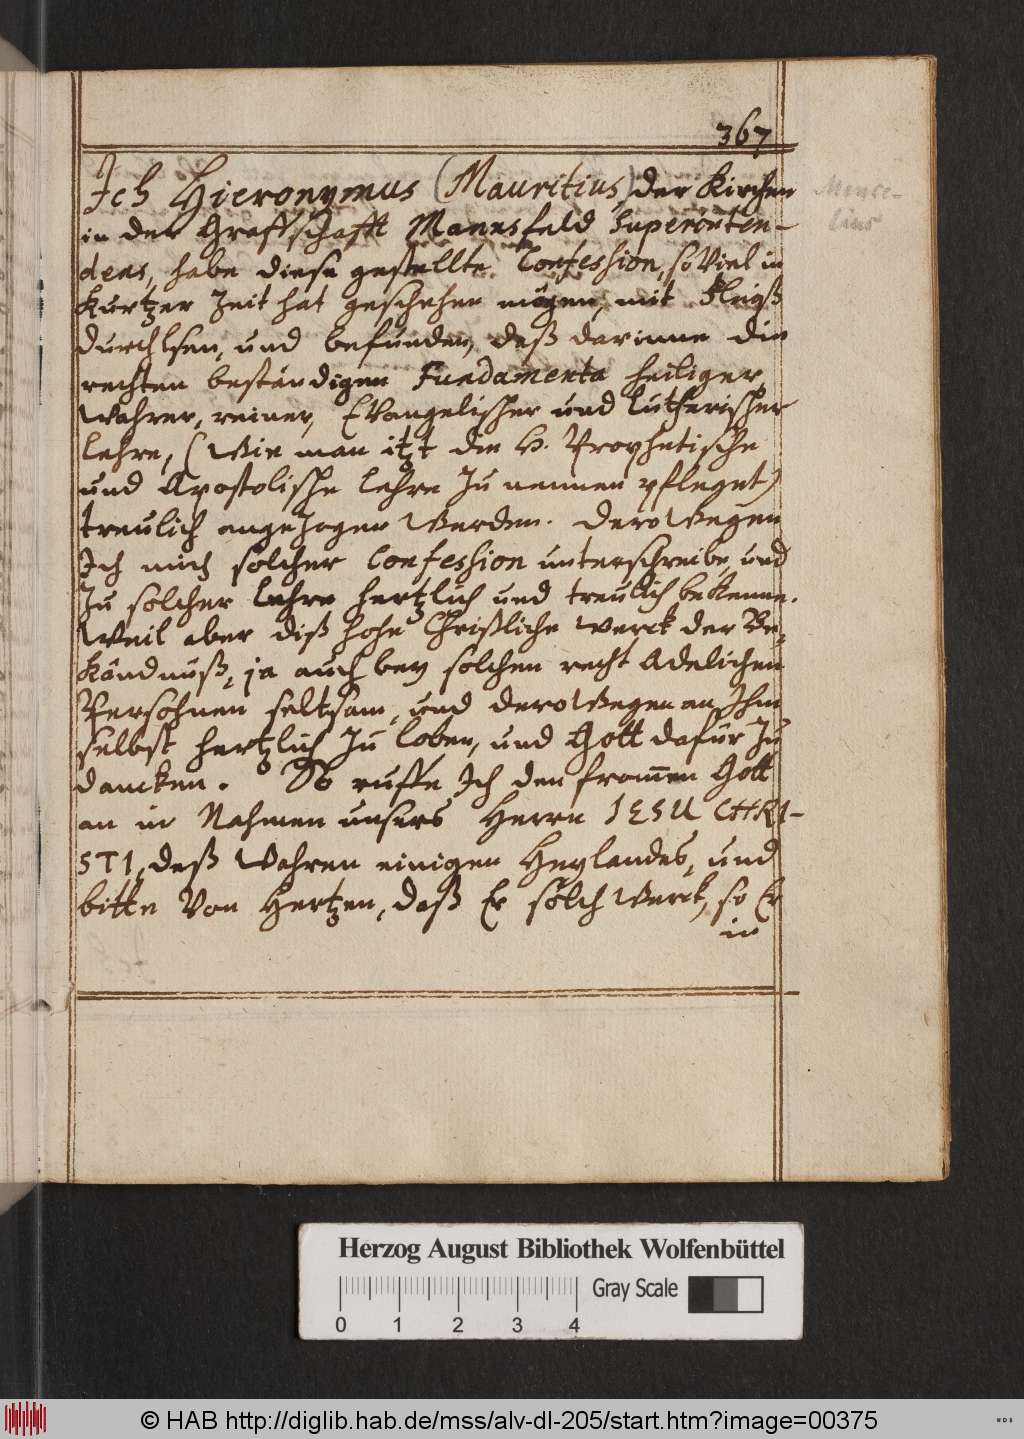 367
Ich Hieronymus (Mauritius) der Kirchen
in der Graffschafft Mannsfeld Superinten-
dens, habe diese gestellte Confession, so viel in
kurtzer Zeit hat geschehen mögen, mit Fleiß
durchlsen, und befunden, daß darinne die
rechten beständigen Fundamenta heiliger,
wahrer, reiner, Evangelischer und Lutherischer
Lehre, (Wie man itzt die H. Prophetische
und Apostolische Lehre zu nennen pfleget)
treulich angezogen werden. Derowegen
Ich mich solcher Confession unterschreibe, und
zu solcher Lehre hertzlich und treulich bekenne.
Weil aber diß hohe Christliche werck der Be-
kändnüß, ja auch bey solchen recht Adelichen
Persohnen seltsam, und derowegen an Ihm
selbst hertzlich zu loben, und Gott dafür zu
dancken. So ruffe Ich den from̅en Gott
an in Nahmen unsers Herrn JESU CHRI-
STI, deß wahren einigen Heylandes, und
bitte von Hertzen, daß Er solch Werck, so Er
in
Mence-
lius
Herzog August Bibliothek Wolfenbüttel
Gray Scale
0 1 2 3 4
© HAB http://diglib.hab.de/mss/alv-dl-205/start.htm?image=00375
WDB